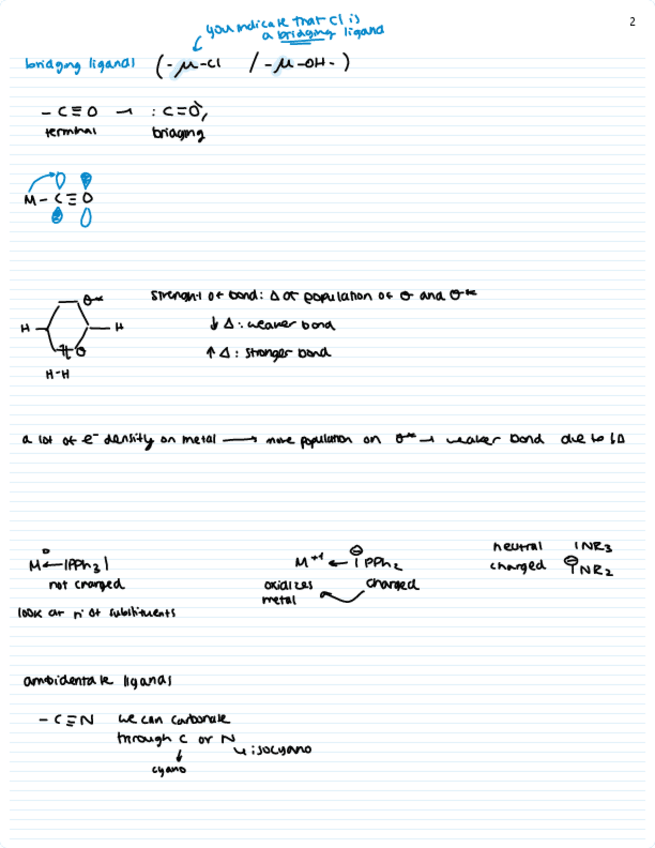 2
you indicate that Cl is
a bridging ligand
bridging ligand (-μ-Cl / -μ-OH-)
-C≡O → :C≡O:
terminal bridging
M-C≡O
σ*
strenght of bond: Δ of population of σ and σ*
H H
↓Δ: weaker bond
σ
↑Δ: stronger bond
H-H
a lot of e⁻ density on metal → more population on σ* → weaker bond due to ↓Δ
neutral :NR₃
M⁰←|PPh₃|
M⁺¹←|PPh₂ ⊖
charged ⊖ |NR₂
not charged
oxidizes charged
metal
look at n° of substituents
ambidentate ligands
-C≡N we can carbonate
through C or N
↳ isocyano
cyano